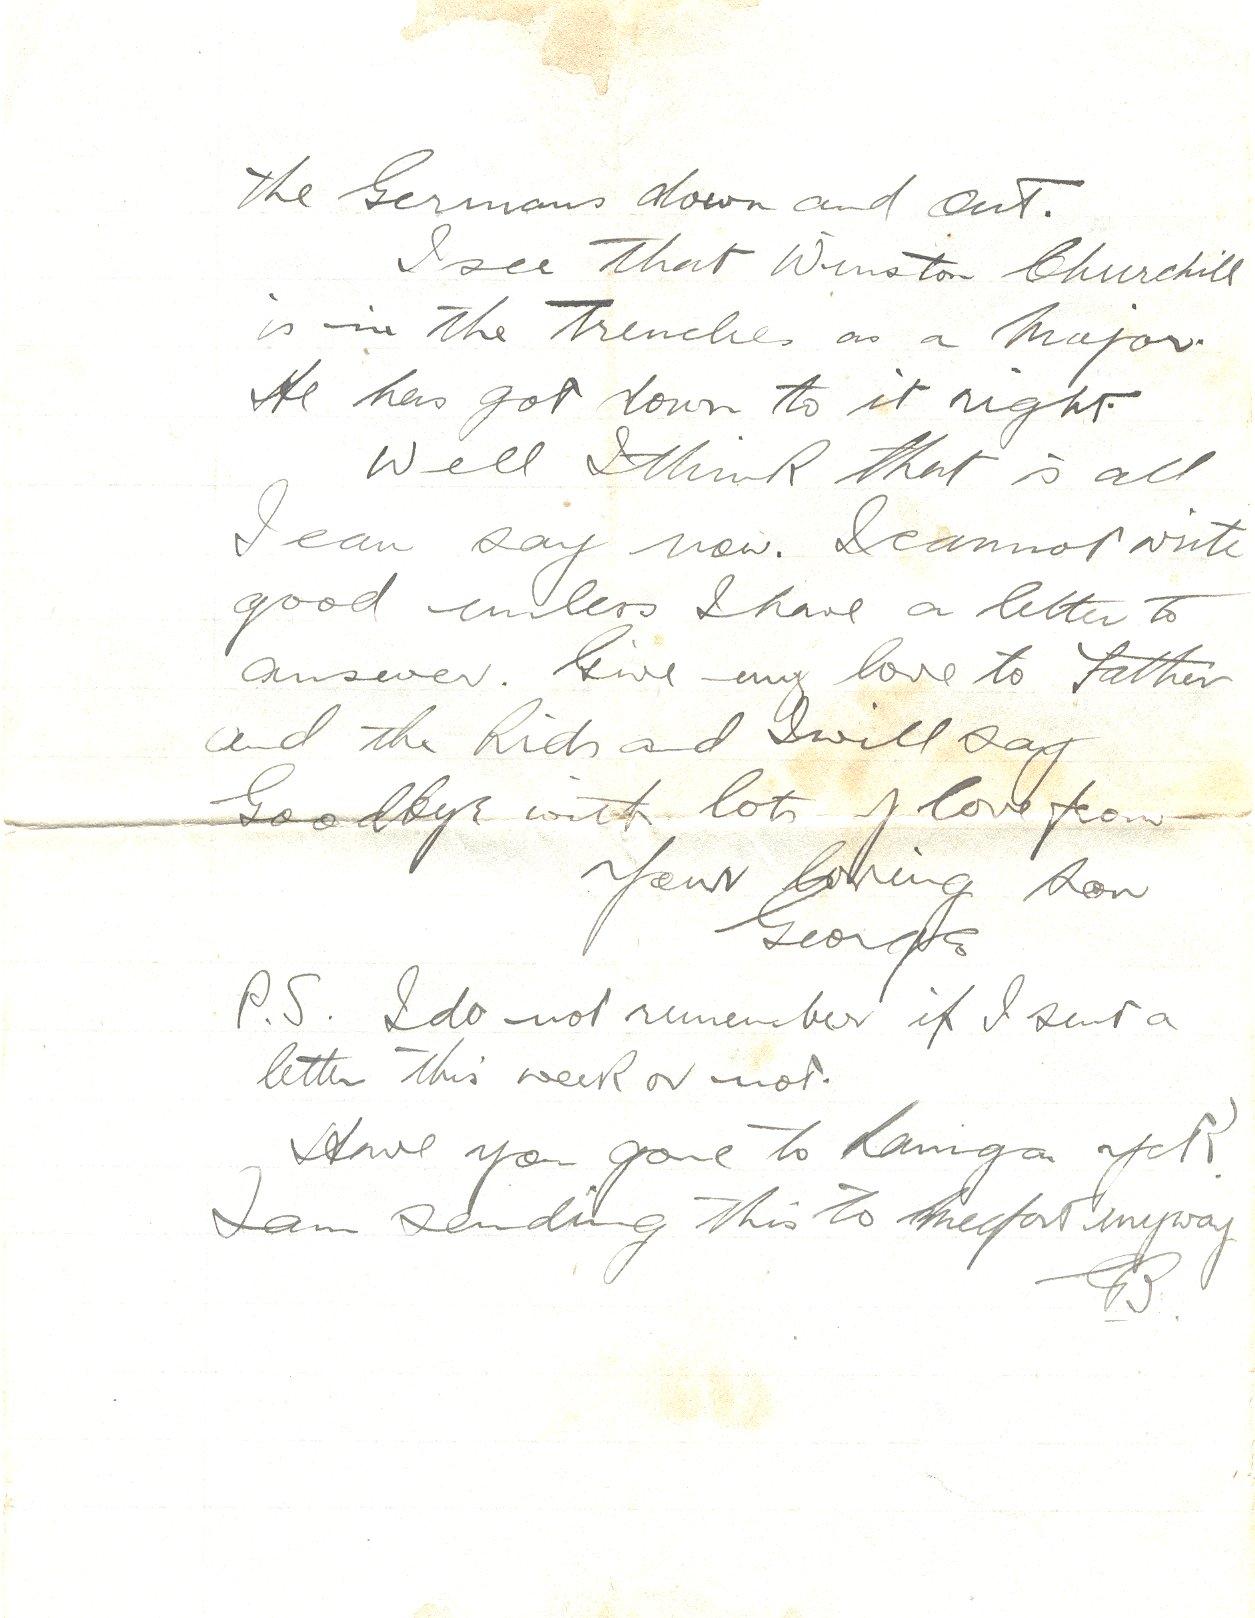 the Germans down and out.
I see that Winston Churchill
is in the Trenches as a Major.
He has got down to it right.
Well I think that is all
I can say now. I cannot write
good unless I have a letter to
answer. Give my love to Father
and the kids and I will say
Goodbye with lots of love from
Your loving son
George
P.S. I do not remember if I sent a
letter this week or not.
Have you gone to yet?
I am sending this to anyway
GB.